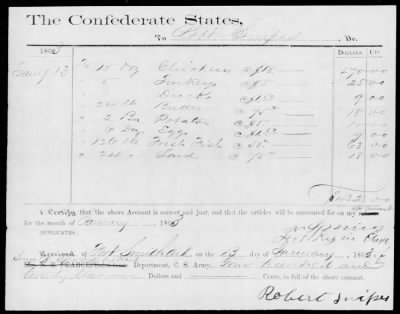 The Confederate States,
To Robt Snipes Dr.
1863 DOLLARS. CTS.
Jany 13 To 18 Doz Chickens @ $15 270 00
" 5 Turkeys @ $5 25 00
" 6 Ducks @ $1.50 9 00
" 24 lb Butter @ 75c 18 00
" 2 Bu Potatoes @ $5 10 00
" 6 Doz Eggs @ $1.50 9 00
" 126 lb Fresh Fish @ 50c 63 00
" 24 " Lard @ 75c 18 00
$422 00
I Certify that the above Account is correct and just, and that the articles will be accounted for on my
for the month of January 1863
DUPLICATES.
Surgeon in Charge
Received at Fort Smith Ark on the 13 day of January 1863 of
Department, C. S. Army, Four hundred and
twenty two Dollars and Cents, in full of the above account.
Robert Snipes